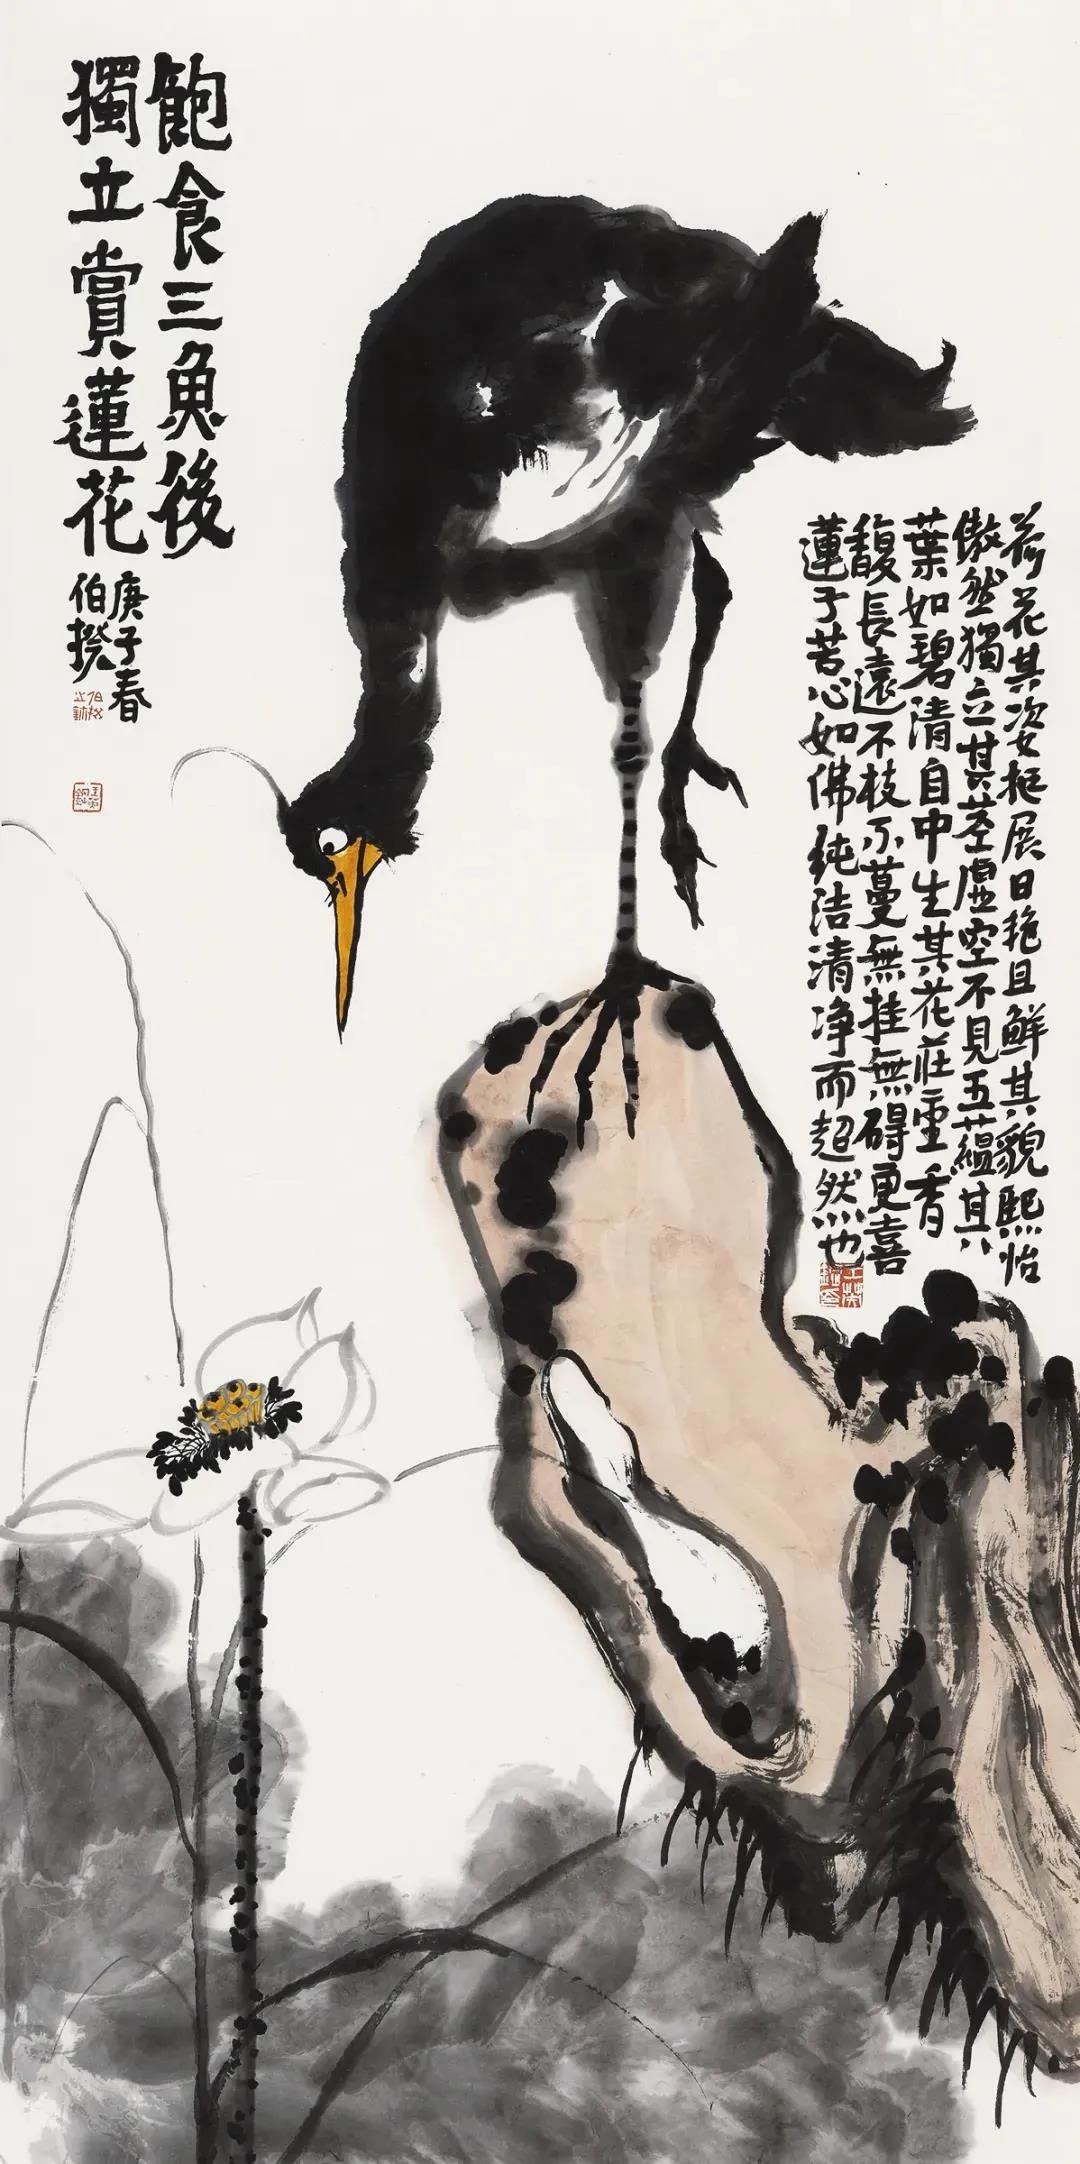 飽食三魚後
獨立賞蓮花
庚子春
伯揆
荷花其姿極展日艳且鮮其貌熙怡
傲然獨立其茎虚空不見五蘊其
葉如碧清自中生其花莊重香
馥長遠不枝不蔓無挂無碍更喜
蓮子苦心如佛純洁清净而超然也